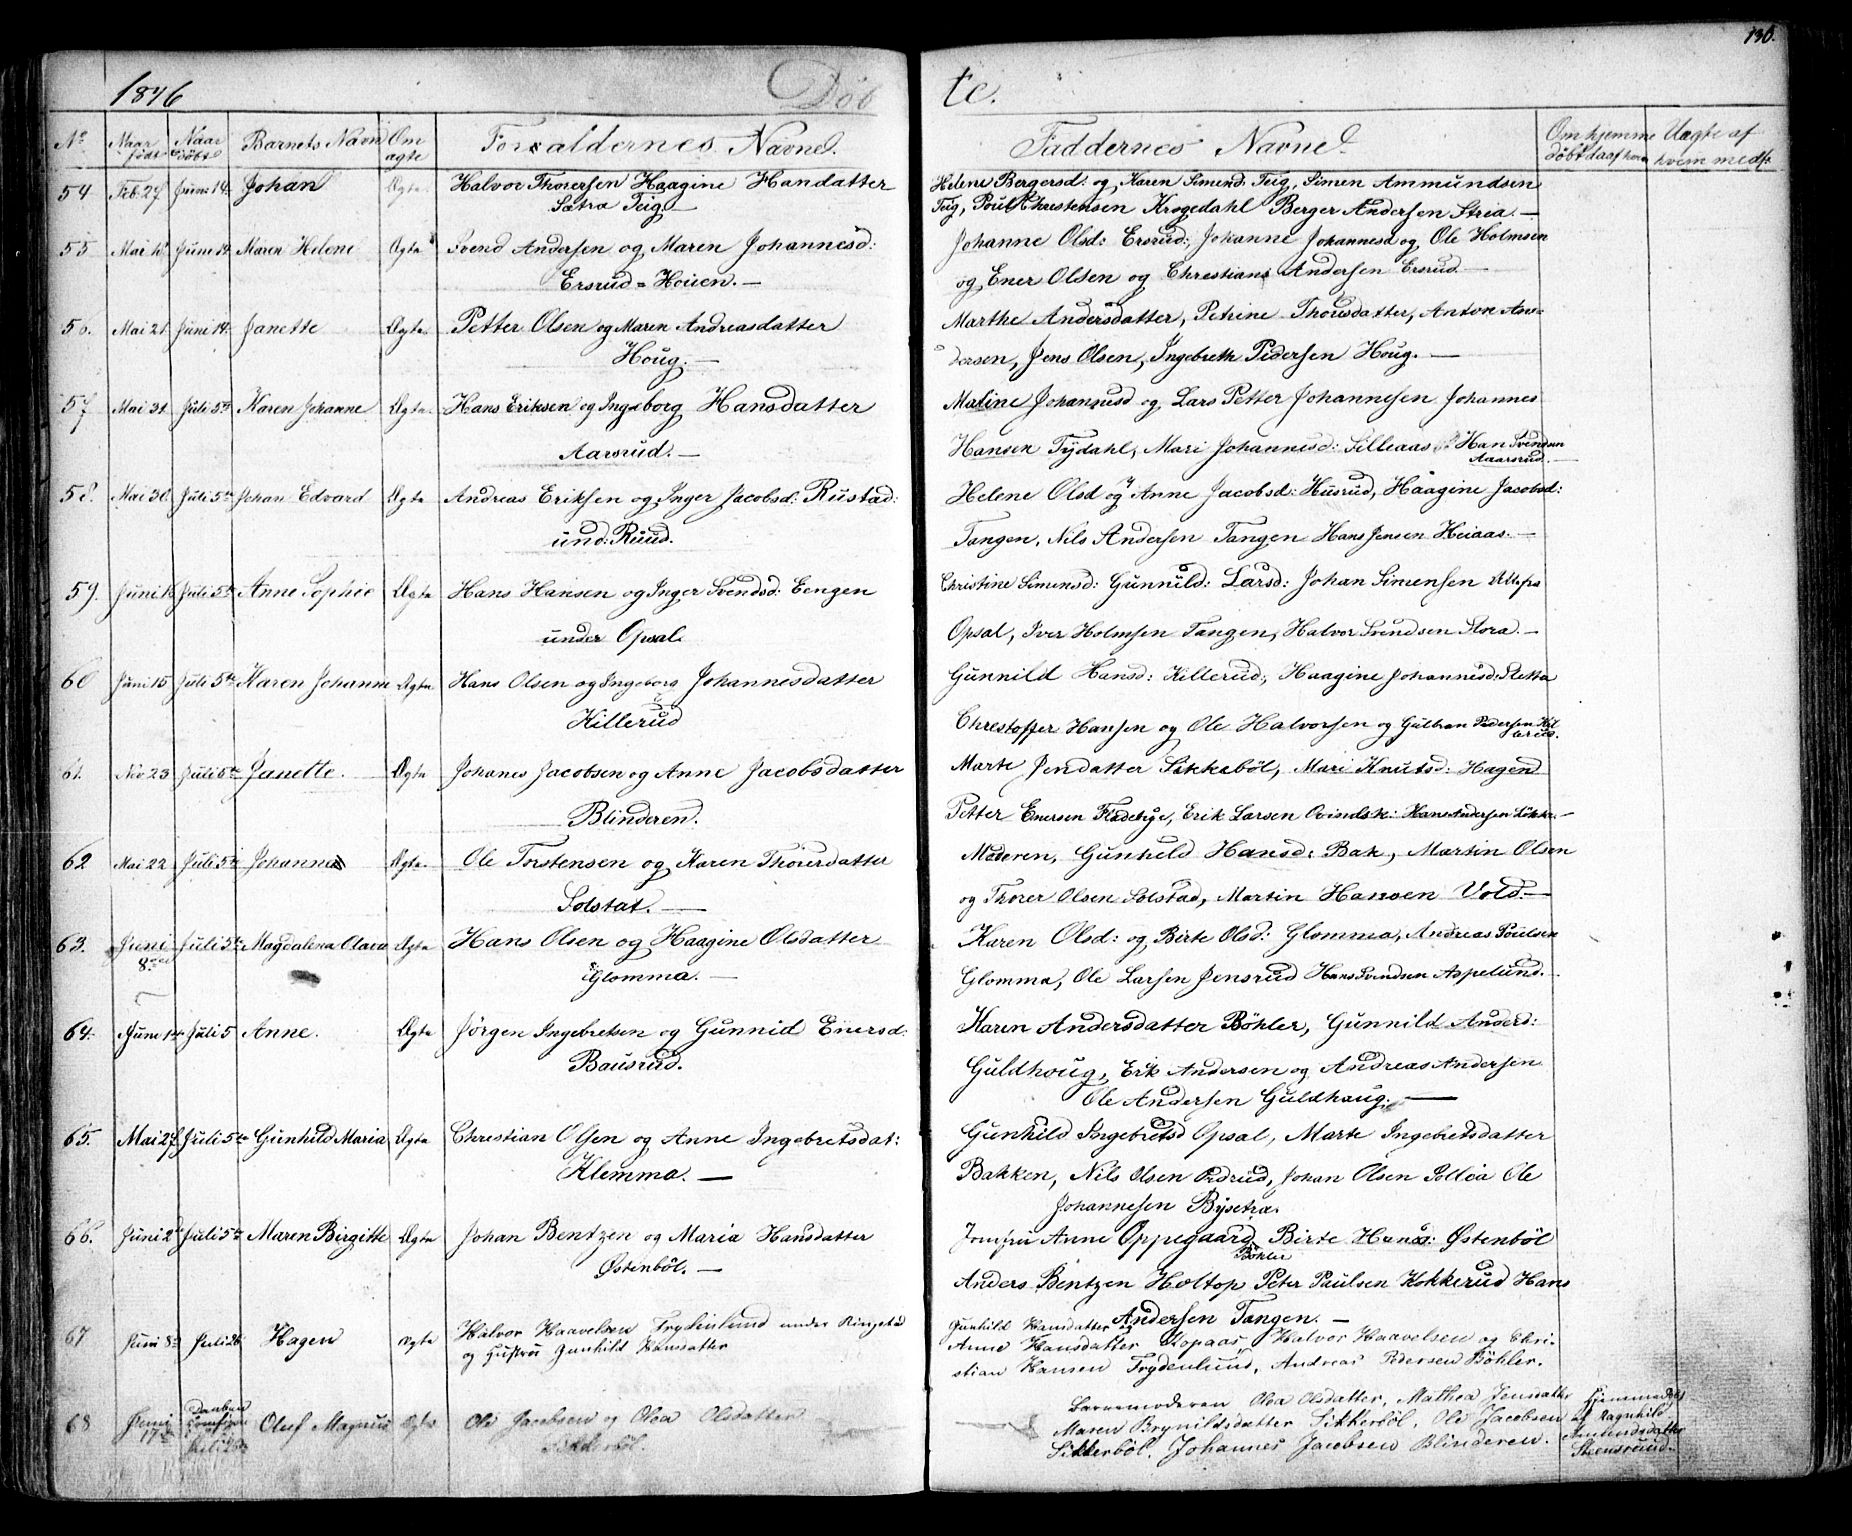 130.
1846 Döbte.
No Naar födt Naar döbt Barnets Navn Om ægte Forældernes Navne. Faddernes Navne. Om hjemmedöbt da af hvem Uægte af hvem med?
54 Feb. 27 Juni 14. Johan Ægte Halvor Thorersen Haagine Handatter Helene Bergersd: og Karen Simend: Teig, Simen Ammundsen
Sætra Teig.— Teig, Poul Chrestensen Krogedahl Berger Andersen Stria.—
55 Mai Juni 14. Maren Helene Ægte Svend Andersen og Maren Johannesd: Johanne Olsd: Ersrud, Johanne Johannesd og Ole Holmsen
Ersrud=Houen.— og Ener Olsen og Chrestian Andersen Ersrud—
56. Mai 21. Juni 14. Janette Ægte. Petter Olsen og Maren Andreasdatter Marthe Andersdatter, Petrine Thorsdatter, Anton An-
Houg.— dersen, Jens Olsen, Ingebreth Pedersen Houg.—
57 Mai 31. Juli 5te Karen Johanne Ægte. Hans Eriksen og Ingeborg Hansdatter Maline Johannesd og Lars Petter Johannesen Johannes
Aarsrud.— Hansen Tydahl, Mari Johannesd: Silleaas Han Svendsen
Aaarsrud.—
58. Mai 30. Juli 5te Johan Edvard Ægte Andreas Eriksen og Inger Jacobsd: Rustad: Helene Olsd og Anne Jacobsd: Husrud, Haagine Jacobsd:
und: Ruud. Tangen, Nils Andersen Tangen Hans Jensen Heiaas.—
59. Juni Juli 5te Anne Sophie Ægte Hans Hansen og Inger Svendsd: Eengen Christine Simensd: Gunnild: Larsd: Johan Simensen Alle fra
under Opsal. Opsal, Iver Holmsen Tangen, Halvor Svendsen Stora.—
60 Juni 15 Juli 5te Karen Johanne Ægte. Hans Olsen og Ingeborg Johannesdatter Gunnild Hansd: Killerud, Haagine Johannesd: Sletta
Killerud Chrestoffer Hansen og Ole Halvorsen og Gulbran Pedersen Kil
lerud.
61. Juli 5te Janette. Ægte Johanes Jacobsen og Anne Jacobsdatter Marte Jensdatter Sikkeböl, Mari Knutsd: Hagen
Blinderen. Petter Enersen Fladebye, Erik Larsen Hans Andersen Lökke.—
62 Mai 22 Juli 5te Johannes Ægte. Ole Torstensen og Karen Thorerdatter Moderen, Gunheld Hansd: Bak, Martin Olsen
Solstat.— og Thorer Olsen Solstad, Martin Hansen Vold.—
63. Juni Juli 5te Magdalena Olava Ægte Hans Olsen og Haagine Olsdatter Karen Olsd: og Birte Olsd: Glomma, Andreas Poulsen
8de Glomma.— Glomma, Ole Larsen Jensrud Hans Svendsen Aspelund.—
64. Juni Juli 5 Anne. Ægte Jörgen Ingebretsen og Gunnid Enersd: Karen Andersdatter Böhler, Gunnild Andersd:
Bausrud. Guldhoug, Erik Andersen og Andreas Andersen
Ole Andersen Guldhaug.—
65. Mai 27 Juli 5te Gunhild Maria Ægte Christian Olsen og Anne Ingebretsdat: Gunhild Ingebretsd Opsal, Marte Ingebretsdatter
Klemma.— Bakken, Nils Olsen Johan Olsen Ole
Johannesen Bysetra.
66. Juni 2 Juli 5te Maren Birgitte Ægte Johan Bentzen og Maria Hansdatter Jomfru Anne Oppegaard Birte Hansd: Østenböl
Böhler
Østenböl.— Anders Bentzen Holtop Peter Paulsen Kokkerud Hans
Andersen Tangen.—
67 Juni 8de Juli 26 Hagen Ægte Halvor Haavelsen Frydenlund under Ringstad Gunhild Hansdatter og
og Hustru Gunhild Hansdatter Anne Hansdatter Kopaas Halvor Haavelsen og Chri-
stian Hansen Frydenlund, Andreas Pedersen Böhler.
68 Juni 17de Daaben Oluf Magnus Ægte Ole Jacobsen og Oloa Olsdatter Barnemoderen Oloa Olsdatter, Mathea Jensdatter Hjemmedöbt
Sikkerböl. Maren Brynildsdatter Sikkerböl, Ole Jacobsen af Ragnhild
Sikkerböl, Johannes Jacobsen Blinderen. Amundsdatter
Steensrund.